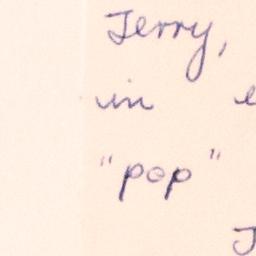 Jerry,
in
"pop"